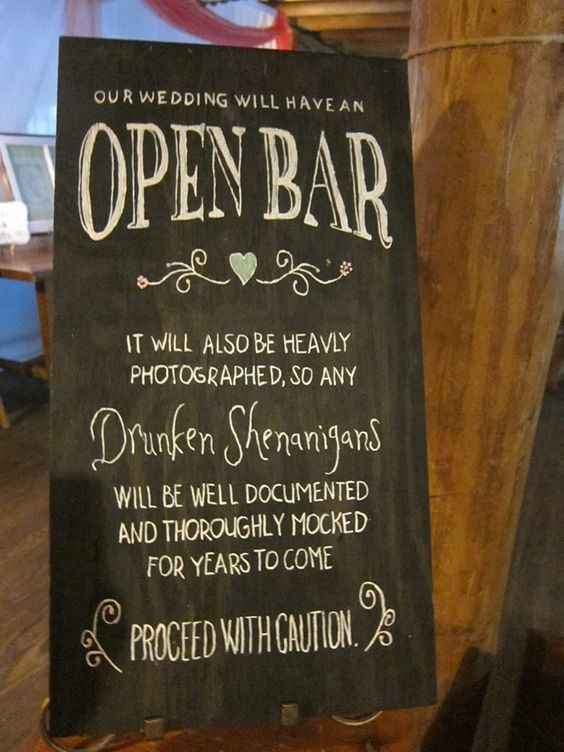 OUR WEDDING WILL HAVE AN
OPEN BAR
IT WILL ALSO BE HEAVLY
PHOTOGRAPHED, SO ANY
Drunken Shenanigans
WILL BE WELL DOCUMENTED
AND THOROUGHLY MOCKED
FOR YEARS TO COME
PROCEED WITH CAUTION.